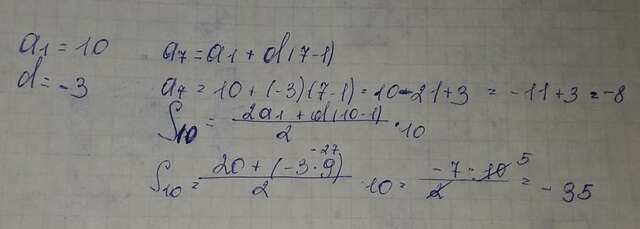 a₁ = 10
d = -3
a₇ = a₁ + d(7-1)
a₇ = 10 + (-3)(7-1) = 10-21+3 = -11+3 = -8
S₁₀ = (2a₁ + d(10-1))/2 · 10
S₁₀ = (20 + (-3·9))/2 · 10 = (-7·10)/2 = -35
-27
5